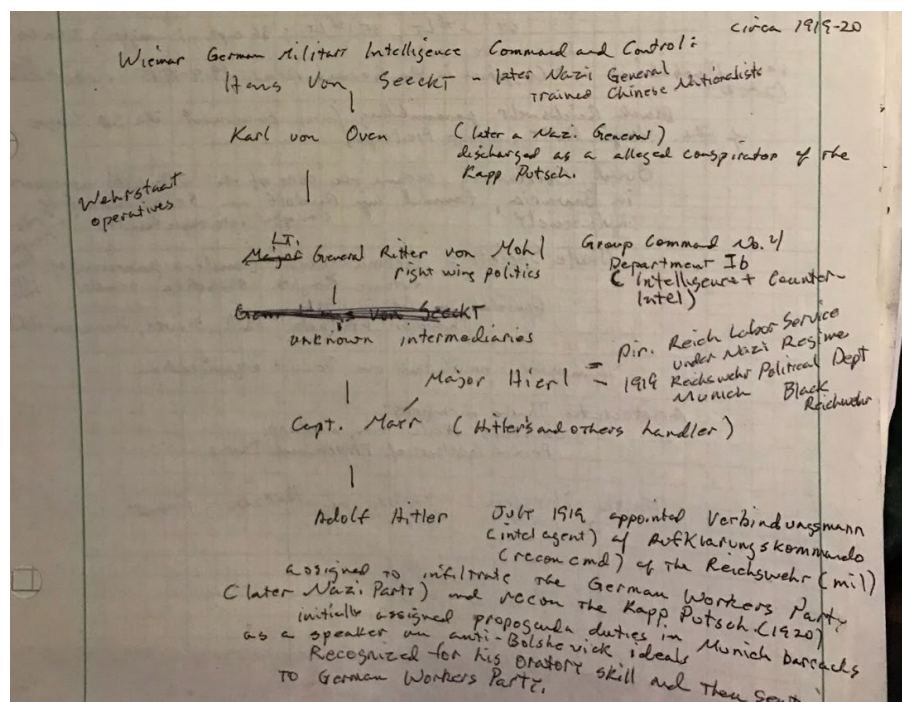 circa 1919-20
Wiemar German Military Intelligence Command and Control:
Hans Von Seeckt - later Nazi General
trained Chinese Nationalists
Karl von Oven (later a Nazi General)
discharged as a alleged conspirator of the
Kapp Putsch.
Wehrstaat
operatives
LT.
Major General Ritter von Mohl Group Command No. 4/
right wing politics Department Ib
(Intelligence + Counter-
Intel)
Hans von Seeckt
unknown intermediaries
Major Hierl = Dir. Reich Labor Service
under Nazi Regime
- 1919 Reichswehr Political Dept
Munich Black
Reichwehr
Capt. Mayr (Hitler's and others handler)
Adolf Hitler July 1919 appointed Verbindungsmann
(intel agent) of Aufklarungskommando
(recon cmd) of the Reichswehr (mil)
assigned to infiltrate the German Workers Party
(later Nazi Party) and recon the Kapp Putsch. (1920)
initially assigned propoganda duties in Munich barracks
as a speaker on anti-Bolshevick ideals
Recognized for his oratory skill and then sent
to German Workers Party.